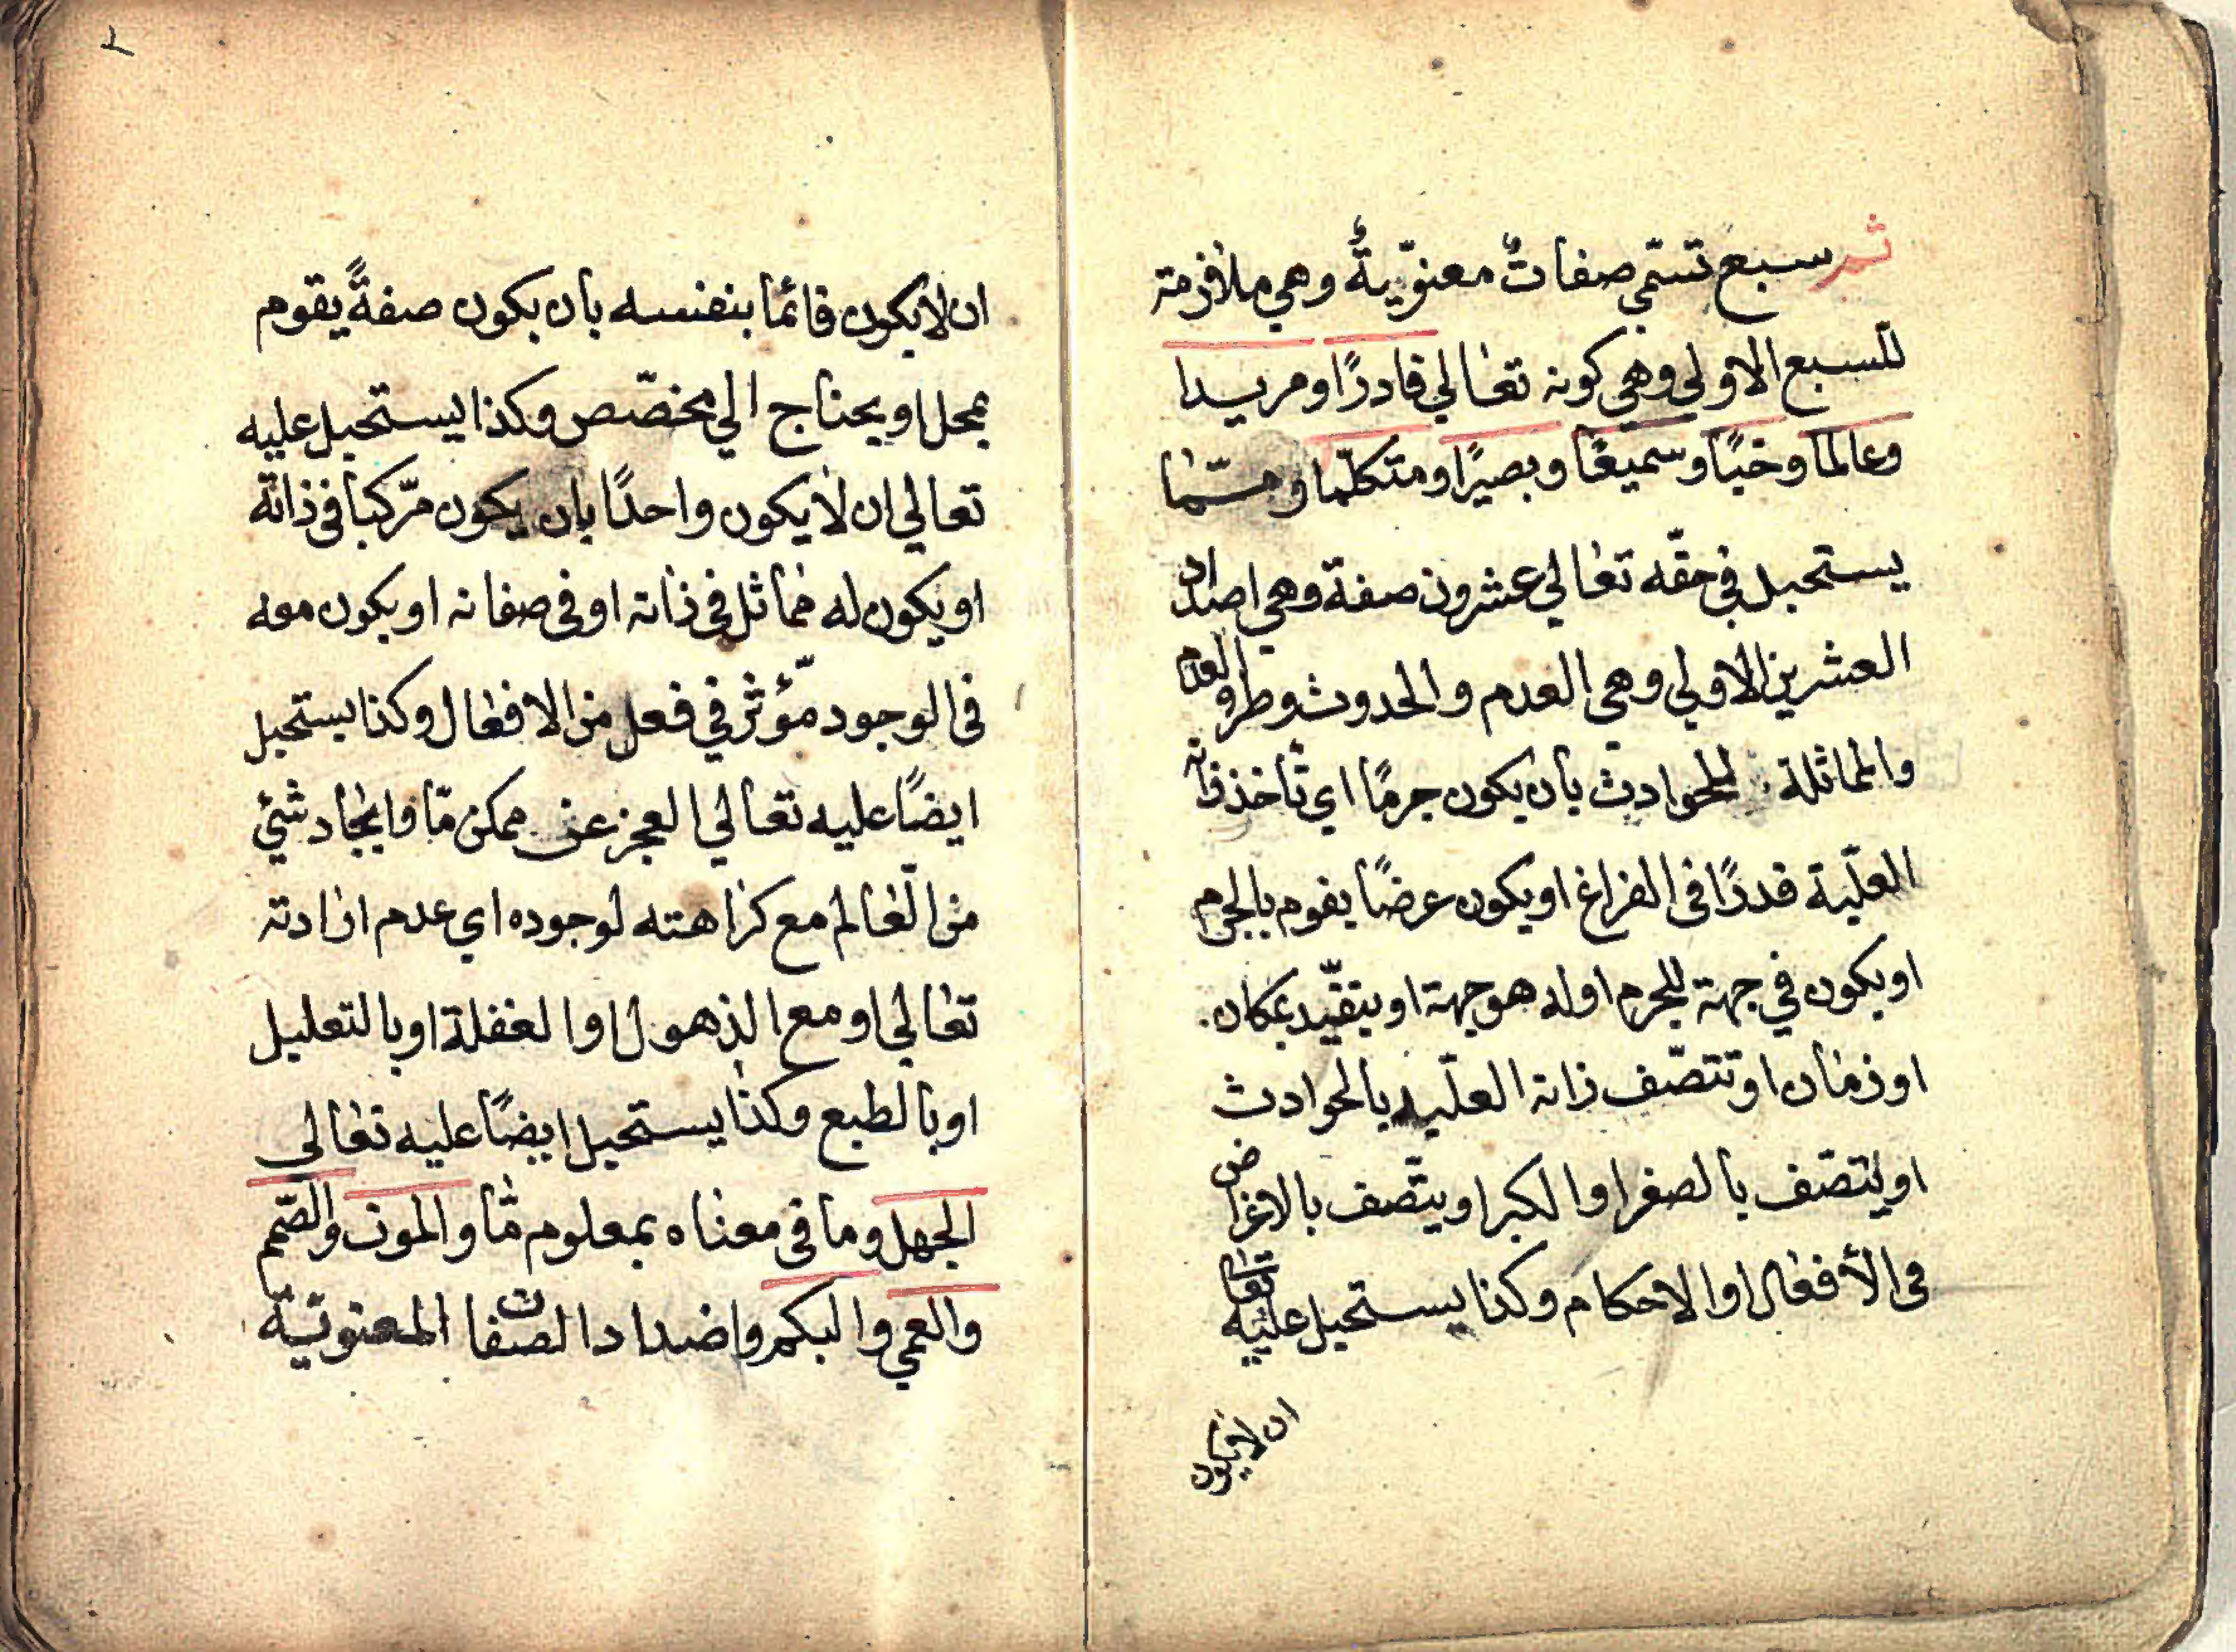 ثم سبع تسمّي صفاتٌ معنوّيةٌ وهي ملازمة
للسبع الاولي وهي كونه تعالي قادرًا ومريدا
وعالما وحيًا وسميعًا وبصيرًا ومتكلّما وممّا
يستحيل في حقّه تعالي عشرون صفة وهي اضداد
العشرين الاولي وهي العدم والحدوث وطرو العدم
والمماثلة للحوادث بأن يكون جرمًا اي تأخذ ذاته
العلّية قدرًا في الفراغ او يكون عرضًا يقوم بالجرم
او يكون في جهة للجرم اوله هو جهة او يتقيّد بمكان
او زمان او تتصّف ذاته العلّيه بالحوادث
او يتصّف بالصغر او الكبر او يتّصف بالاغراض
في الأفعال او الاحكام وكذا يستحيل عليه تعالى
ان لايكون
٢
ان لايكون قائمًا بنفسه بأن يكون صفةً يقوم
بمحل او يحتاج الي مخصّص وكذا يستحيل عليه
تعالي ان لا يكون واحدًا بان يكون مرّكبا في ذاته
او يكون له مماثل في ذاته او في صفاته او يكون معه
في الوجود مّؤثر في فعل من الافعال وكذا يستحيل
ايضًا عليه تعالي العجز عن ممكن مّا وايجاد شئي
من العالم مع كراهته لوجوده اي عدم ارادته
تعالي او مع الذهول او الغفلة او بالتعليل
او بالطبع وكذا يستحيل ايضًا عليه تعالى
الجهل وما في معناه بمعلوم مّا والموت والصّمم
والعمي والبكم واضداد الصفات المعنوّيّة